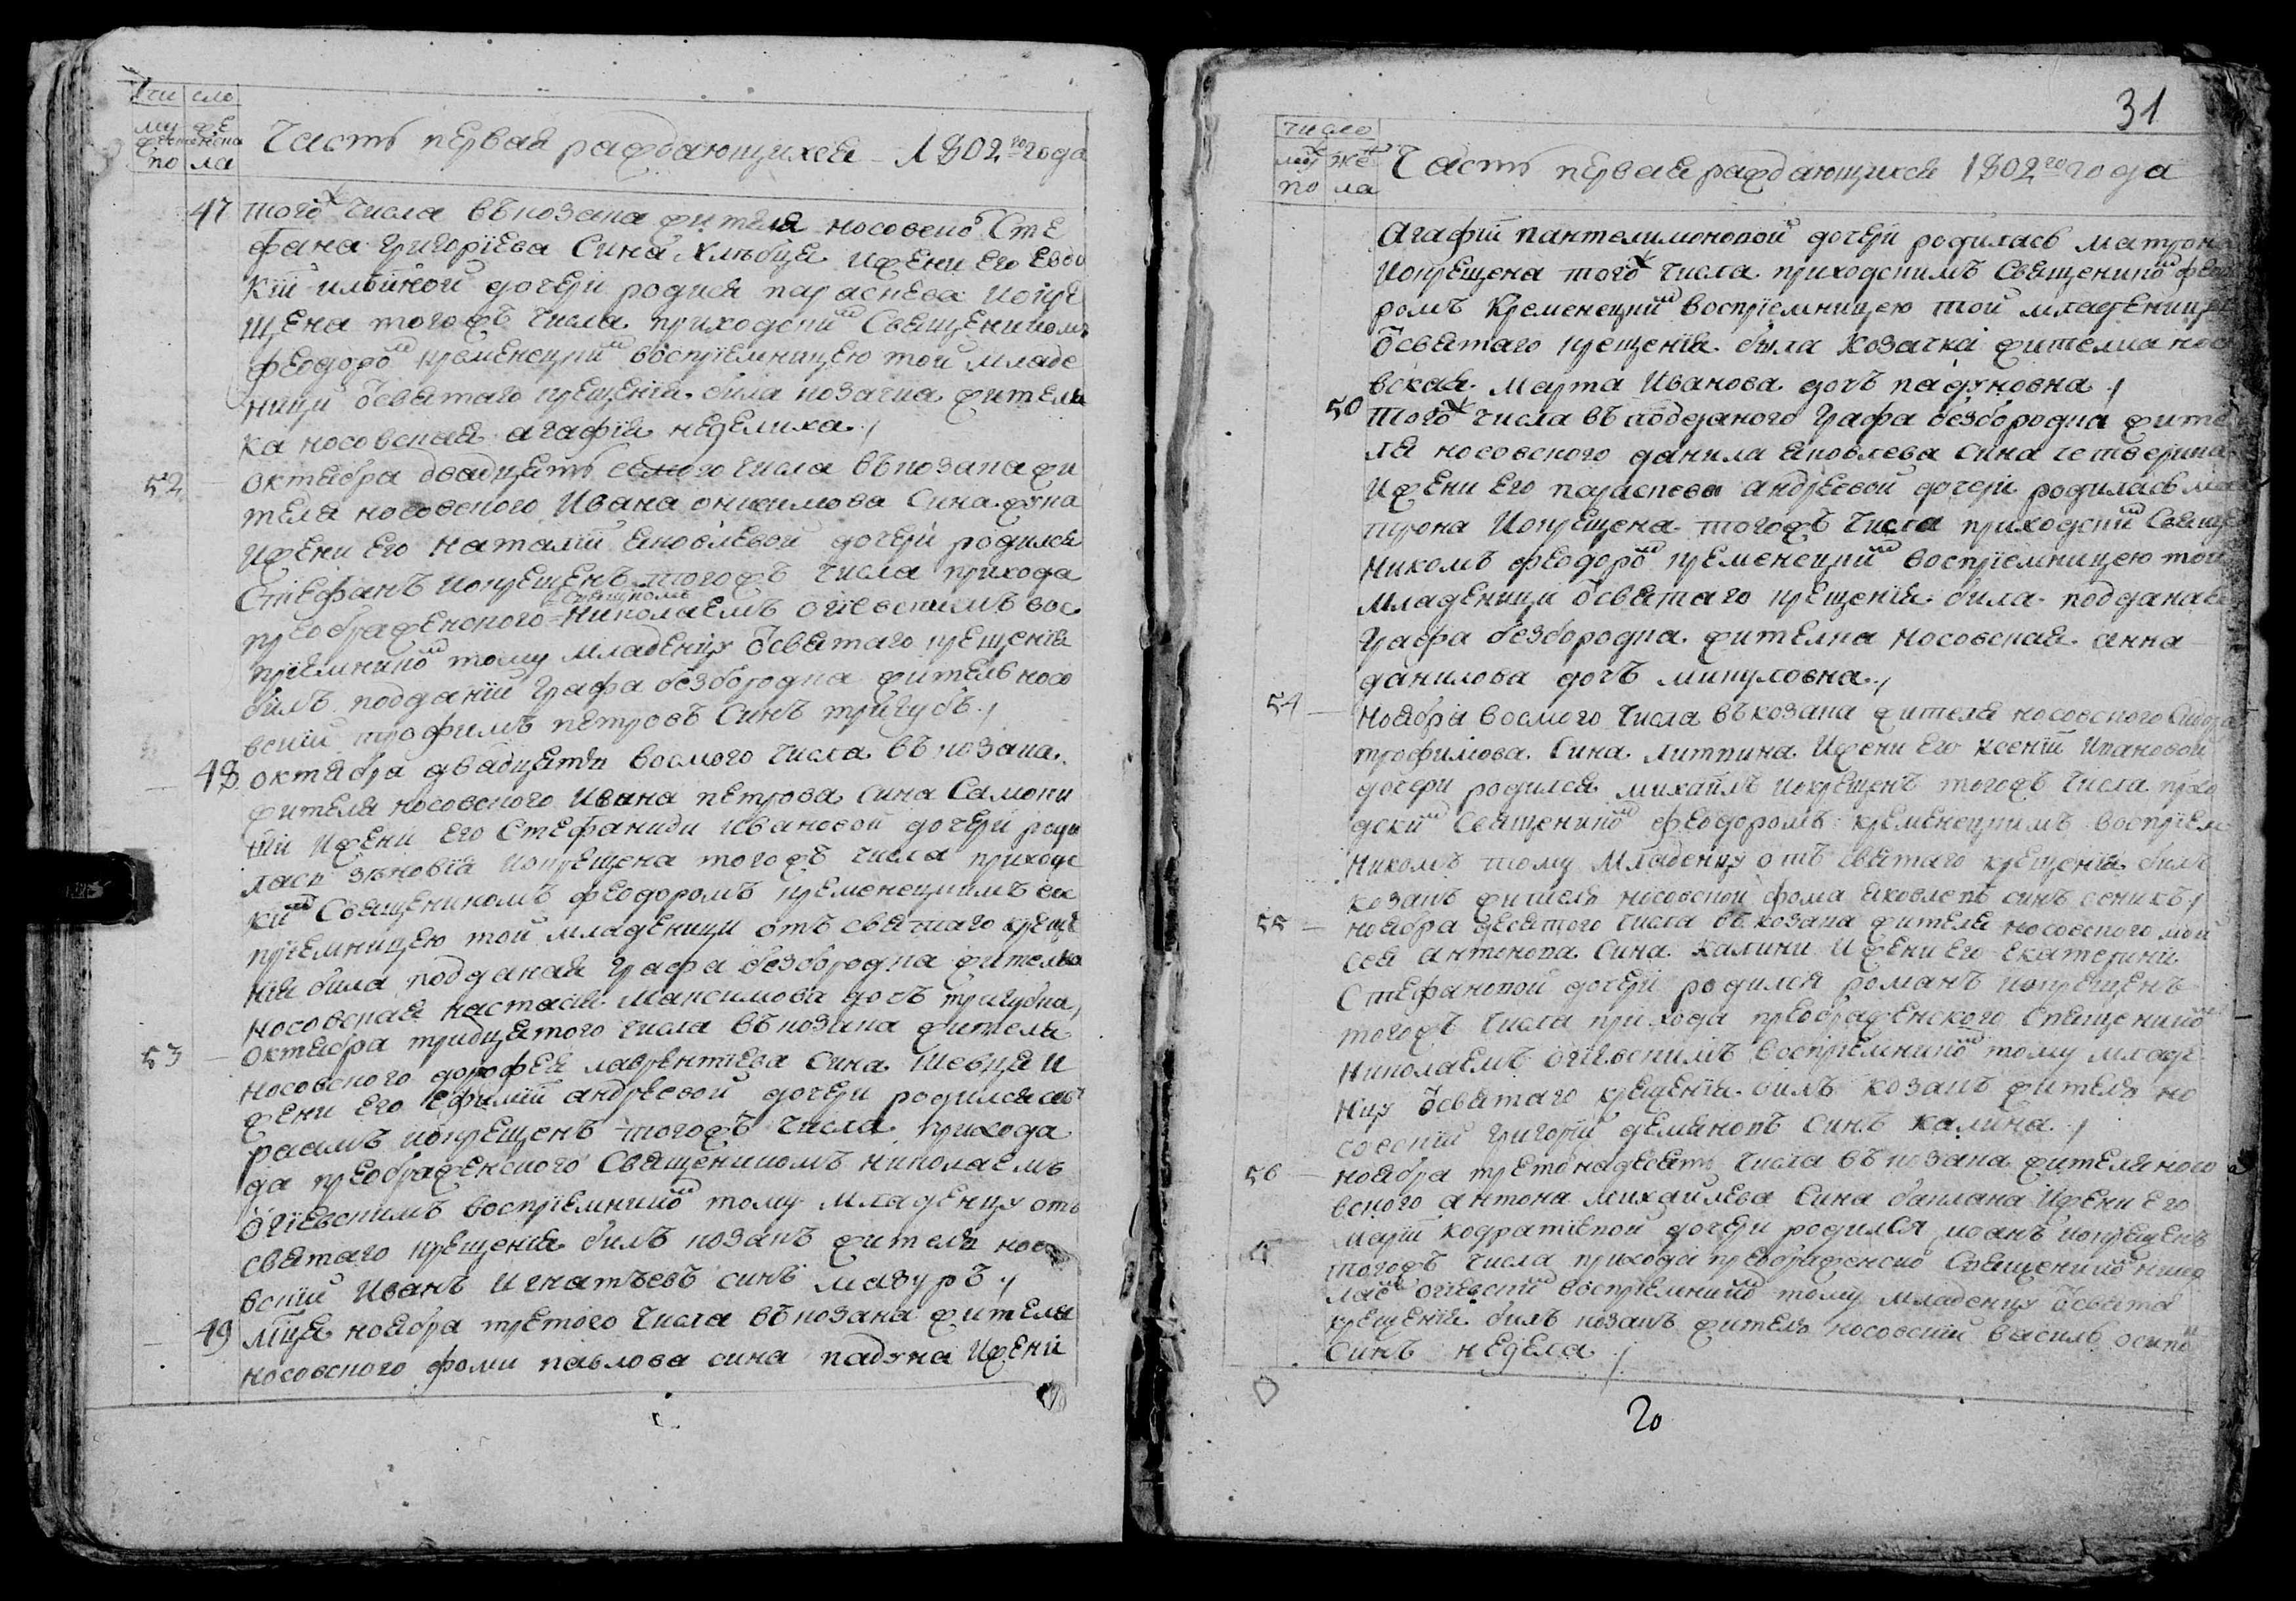 чи сло
му же
жеска женска
по ла
Часть первая раждающихся 1802 го года
47 того ж числа въ козака жителя носовско Сте
фана Григорїева Сина Хлѣбця и жени его Евдо
кїи ильиной дочери родися параскева и окре
щена тогожъ числа приходским Священикомъ
феодоро м кременецким воспрїемницею той младе
ници ѿ святаго крещенїя била козачка житель
ка носовская агафїя неделиха /
52 октября двадцять семого числа въ козака жи
теля носовского Ивана онисимова Сина
и жени его наталїи яковлевой дочери родился
Стефанъ и окрещенъ тогожъ числа прихода
преображенского Священикомъ Николаемъ огїевскимъ вос
прїемнико м тому младенцу ѿ святаго крещенїя
билъ подданїй Графа безбородка житель носо
вскїй трофимъ петровъ Синъ тригубъ /
48 октября двадцяти восмого числа въ козака
жителя носовского Ивана петрова Сина Самоки
шїи и жени его Стефаниди ивановой дочери роди
лася зѣновїя и окрещена тогожъ числа приходс
ким Священикомъ феодоромъ кременецкимъ вос
прїемницею той младеници отъ святаго креще
нїя била подданая Графа безбородка жителька
носовская настасїя Максимова дочъ тригубка /
53 октября тридцятого числа въ козака жителя
носовского дорофея лаврентїева Сина Шевця и
жени его Ефимїи андреевой дочери родился ав
раамъ и окрещенъ тогожъ числа прихода
да преображенского Священикомъ николаемъ
огїевскимъ воспрїемнико м тому младенцу отъ
святаго крещенїя билъ козакъ житель носо
вскїй Иванъ Игнатьевъ синъ мазуръ /
49 мсця ноября третого числа въ козака жителя
носовского фоми павлова сина падуна и жени
31
число
му ж же н
по ла
Часть первая раждающихся 1802 го года
Агафїи пантелимоновой дочери родилась матрона
и окрещена того ж числа приходскимъ Священико м фео
ромъ Кременецким воспрїемницею той младеници
ѿ святаго крещенїя была козачка жителка носо
вская Марта Иванова дочъ падуновна /
50 того ж числа въ подданого Графа безбородка жите
ля носовского данила яковлева сина четверика
и жени его параскеви андреевой дочери родилась ма
трона и окрещена тогожъ числа приходским Свяще
никомъ феодоро м кременецким воспрїемницею той
младеници ѿ святаго крещенїя била подданая
Графа безбородка жителка носовская анна
данилова дочъ микуловна /
54 ноября восмого числа въ козака жителя носовского Сидора
трофимова Сина Литвина и жени его ксенїи Ивановой
дочери родился михаилъ и окрещенъ тогожъ числа прихо
дским Священико м феодоромъ кременецкимъ воспрїем
никомъ тому младенцу отъ святаго крещенїя билъ
козакъ житель носовской фома яковлевъ синъ сеникъ /
55 ноября десятого числа въ козака жителя носовского мой
сея антонова Сина калини и жени его екатерини
Стефановой дочери родился романъ и окрещенъ
тогожъ числа прихода преображенского Священико м
николаемъ огїевскимъ воспрїемнико м тому младе
нцу ѿ святаго крещенїя билъ козакъ житель но
совскїй григорїй демяновъ синъ калина /
56 ноября третонадесять числа въ козака жителя носо
вского антона михайлева Сина баклана и жени его
марїи кодратївной дочери родился иоанъ и окрещенъ
тогожъ числа прихода преображенско Священико м нико
лае м огїевски м воспрїемнико м тому младенцу ѿ свята
крещенїя билъ козакъ житель носовскїй василь осипо
синъ недела /
20